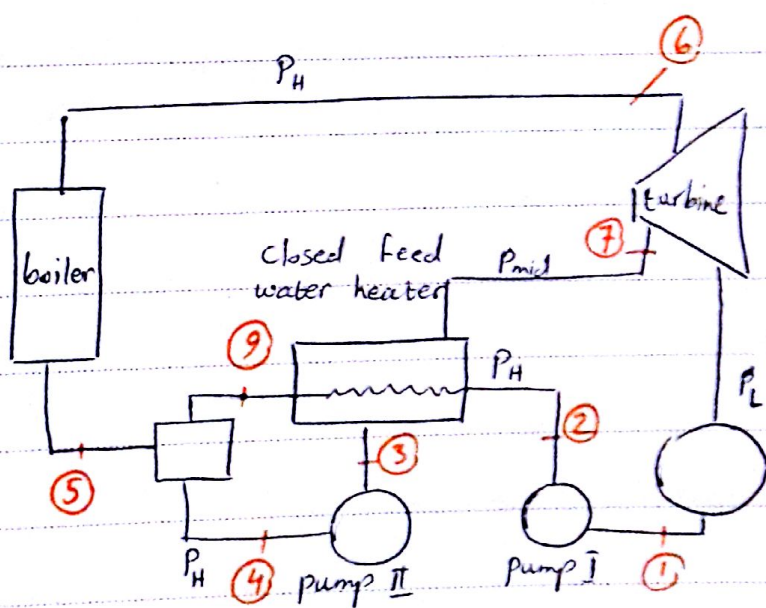 P_H
6
turbine
7
boiler
closed feed
water heater
P_mid
9
P_H
P_L
2
3
5
P_H
4
pump II
pump I
1